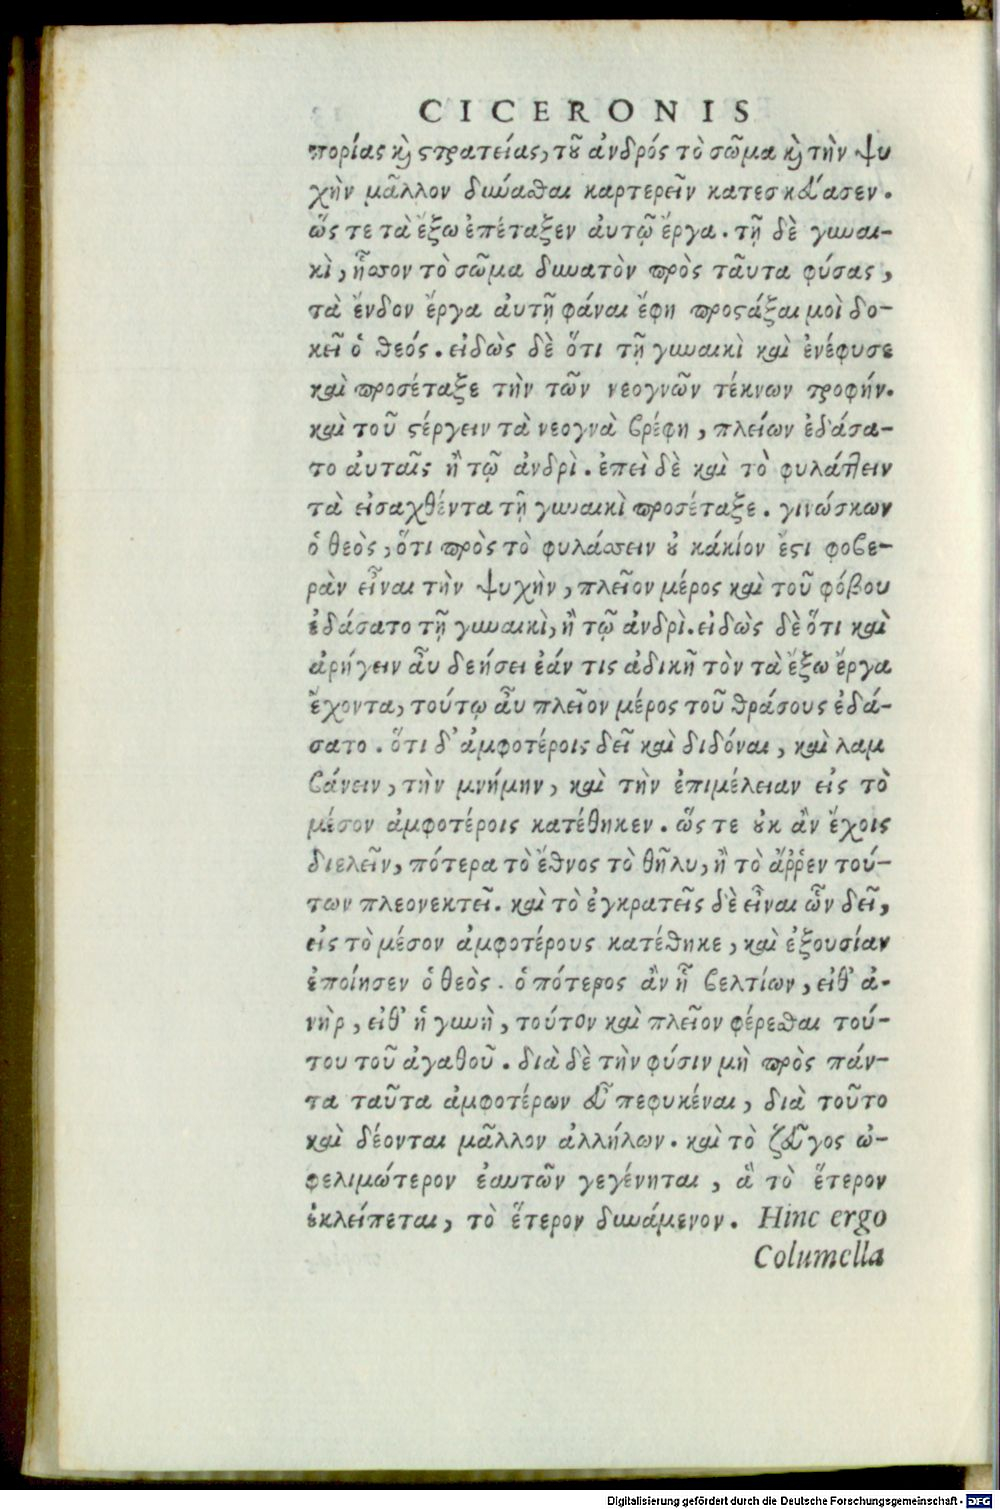 CICERONIS
πορίας καὶ στρατείας, τοῦ ἀνδρός τὸ σῶμα καὶ τὴν ψυ
χὴν μᾶλλον δύναθαι καρτερεῖν κατεσκεύασεν.
ὥς τε τὰ ἔξω ἐπέταξεν αὐτῷ ἔργα. τῇ δὲ γυναι-
κὶ, ἧσσον τὸ σῶμα δυνατὸν πρὸς ταῦτα φύσας,
τὰ ἔνδον ἔργα αὐτῇ φάναι ἔφη προστάξαι μοὶ δο-
κεῖ ὁ θεός. εἰδὼς δὲ ὅτι τῇ γυναικὶ καὶ ἐνέφυσε
καὶ προσέταξε τὴν τῶν νεογνῶν τέκνων τροφήν.
καὶ τοῦ στέργειν τὰ νεογνὰ βρέφη, πλείων ἐδάσα-
το αὐταῖς ἢ τῷ ἀνδρὶ. ἐπεὶ δὲ καὶ τὸ φυλάττειν
τὰ εἰσαχθέντα τῇ γυναικὶ προσέταξε. γινώσκων
ὁ θεὸς, ὅτι πρὸς τὸ φυλάσσειν οὐ κάκίον ἐστι φοβε-
ρὰν εἶναι τὴν ψυχὴν, πλεῖον μέρος καὶ τοῦ φόβου
ἐδάσατο τῇ γυναικὶ, ἢ τῷ ἀνδρὶ. εἰδὼς δὲ ὅτι καὶ
ἀρήγειν αὖ δεήσει ἐάν τις ἀδικῇ τὸν τὰ ἔξω ἔργα
ἔχοντα, τούτῳ αὖ πλεῖον μέρος τοῦ θράσους ἐδά-
σατο. ὅτι δ' ἀμφοτέροις δεῖ καὶ διδόναι, καὶ λαμ
βάνειν, τὴν μνήμην, καὶ τὴν ἐπιμέλειαν εἰς τὸ
μέσον ἀμφοτέροις κατέθηκεν. ὥς τε οὐκ ἂν ἔχοις
διελεῖν, πότερα τὸ ἔθνος τὸ θῆλυ, ἢ τὸ ἄῤῥεν τού-
των πλεονεκτεῖ. καὶ τὸ ἐγκρατεῖς δὲ εἶναι ὧν δεῖ,
εἰς τὸ μέσον ἀμφοτέρους κατέθηκε, καὶ ἐξουσίαν
ἐποίησεν ὁ θεὸς. ὁ πότερος ἂν ᾖ βελτίων, εἰθ' ἀ-
νὴρ, εἰθ' ἡ γυνὴ, τούτον καὶ πλεῖον φέρεσθαι τού-
του τοῦ ἀγαθοῦ. διὰ δὲ τὴν φύσιν μὴ πρὸς πάν-
τα ταῦτα ἀμφοτέρων εὖ πεφυκέναι, διὰ τοῦτο
καὶ δέονται μᾶλλον ἀλλήλων. καὶ τὸ ζεῦγος ὠ-
φελιμώτερον ἑαυτῶν γεγένηται, ἃ τὸ ἕτερον
ἐκλείπεται, τὸ ἕτερον δυνάμενον. Hinc ergo
Columella
Digitalisierung gefördert durch die Deutsche Forschungsgemeinschaft - DFG